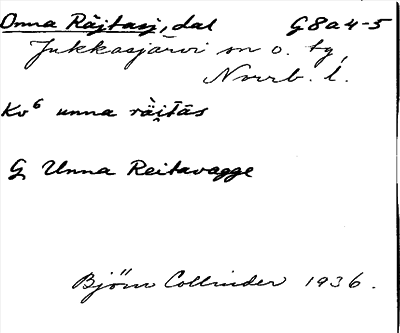 Onna Räjtasj, dal G8a4-5
Jukkasjärvi sn o. tg,
Norrb. l.
Kv⁶ unna räi̯tās
G, Unna Reitavagge
Björn Collinder 1936.